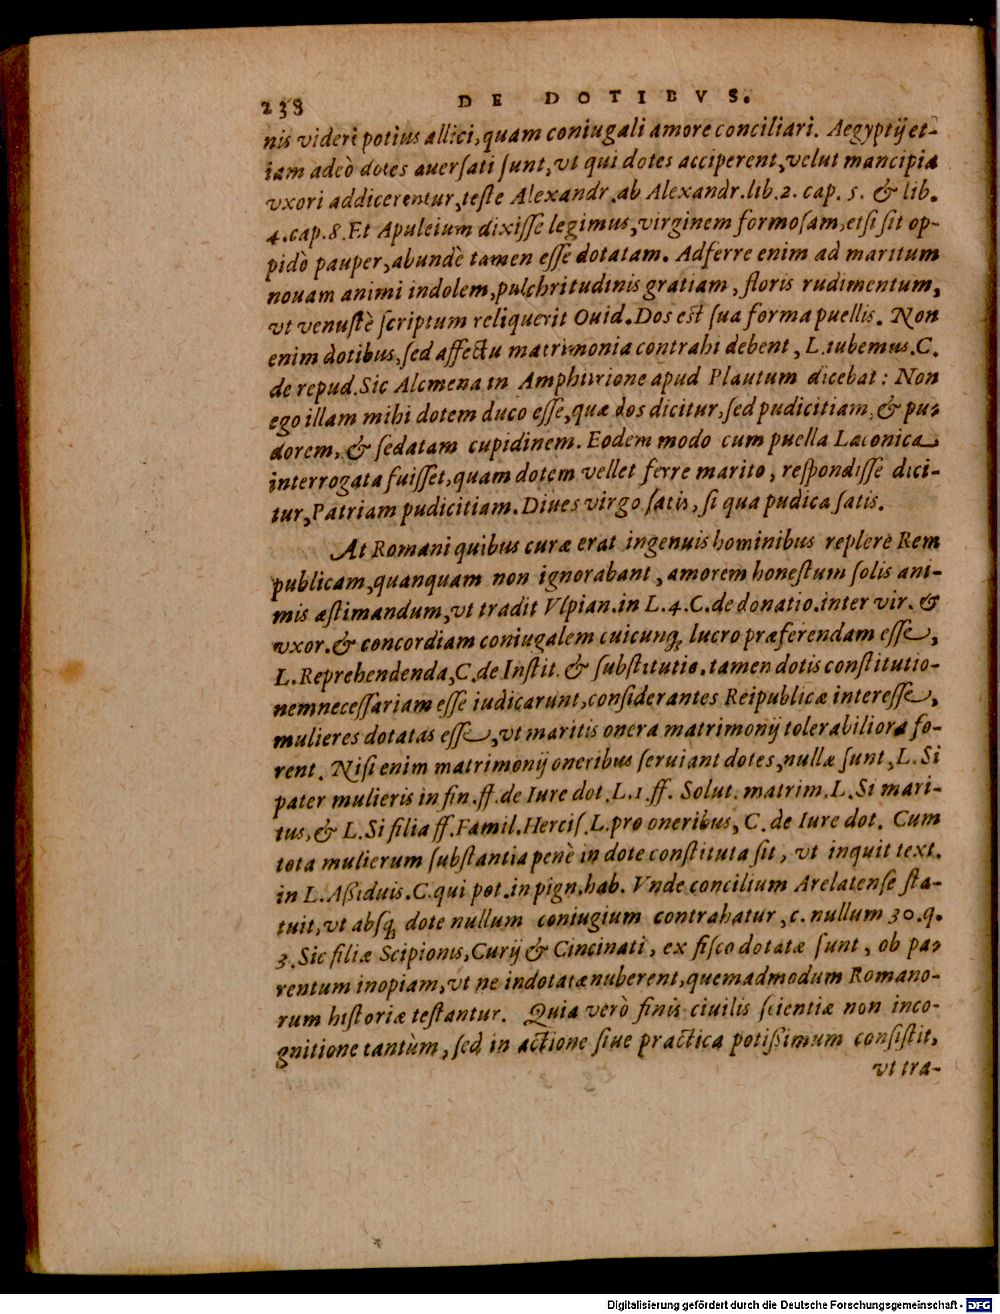 238 DE DOTIBVS.
nis videri potius allici, quam coniugali amore conciliari. Aegyptij et-
iam adeò dotes auersati sunt, vt qui dotes acciperent, velut mancipia
vxori addicerentur, teste Alexandr. ab Alexandr. lib. 2. cap. 5. & lib.
4. cap. 8. Et Apuleium dixisse legimus, virginem formosam, etsi sit op-
pidò pauper, abundè tamen esse dotatam. Adferre enim ad maritum
nouam animi indolem, pulchritudinis gratiam, floris rudimentum,
vt venustè scriptum reliquerit Ouid. Dos est sua forma puellis. Non
enim dotibus, sed affectu matrimonia contrahi debent, L. iubemus. C.
de repud. Sic Alcmena in Amphitrione apud Plautum dicebat: Non
ego illam mihi dotem duco esse, quæ dos dicitur, sed pudicitiam, & pu-
dorem, & sedatam cupidinem. Eodem modo cum puella Laconica
interrogata fuisset, quam dotem vellet ferre marito, respondisse dici-
tur, Patriam pudicitiam. Diues virgo satis, si qua pudica satis.
At Romani quibus curæ erat ingenuis hominibus replere Rem
publicam, quanquam non ignorabant, amorem honestum solis ani-
mis æstimandum, vt tradit Vlpian. in L. 4. C. de donatio. inter vir. &
vxor. & concordiam coniugalem cuicunq; lucro præferendam esse,
L. Reprehendenda, C. de Instit. & substitutio. tamen dotis constitutio-
nemnecessariam esse iudicarunt, considerantes Reipublicæ interesse,
mulieres dotatas esse, vt maritis onera matrimonij tolerabiliora fo-
rent. Nisi enim matrimonij oneribus seruiant dotes, nullæ sunt, L. Si
pater mulieris in fin. ff. de Iure dot. L. 1. ff. Solut. matrim. L. Si mari-
tus, & L. Si filia ff. Famil. Hercis. L. pro oneribus, C. de Iure dot. Cum
tota mulierum substantia penè in dote constituta sit, vt inquit text.
in L. Aßiduis. C. qui pot. in pign. hab. Vnde concilium Arelatense sta-
tuit, vt absq; dote nullum coniugium contrahatur, c. nullum 30. q.
3. Sic filiæ Scipionis, Curij & Cincinati, ex fisco dotatæ sunt, ob pa-
rentum inopiam, vt ne indotatæ nuberent, quemadmodum Romano-
rum historiæ testantur. Quia verò finis ciuilis scientiæ non inco-
gnitione tantùm, sed in actione siue practica potißimum consistit,
vt tra-
Digitalisierung gefördert durch die Deutsche Forschungsgemeinschaft - DFG